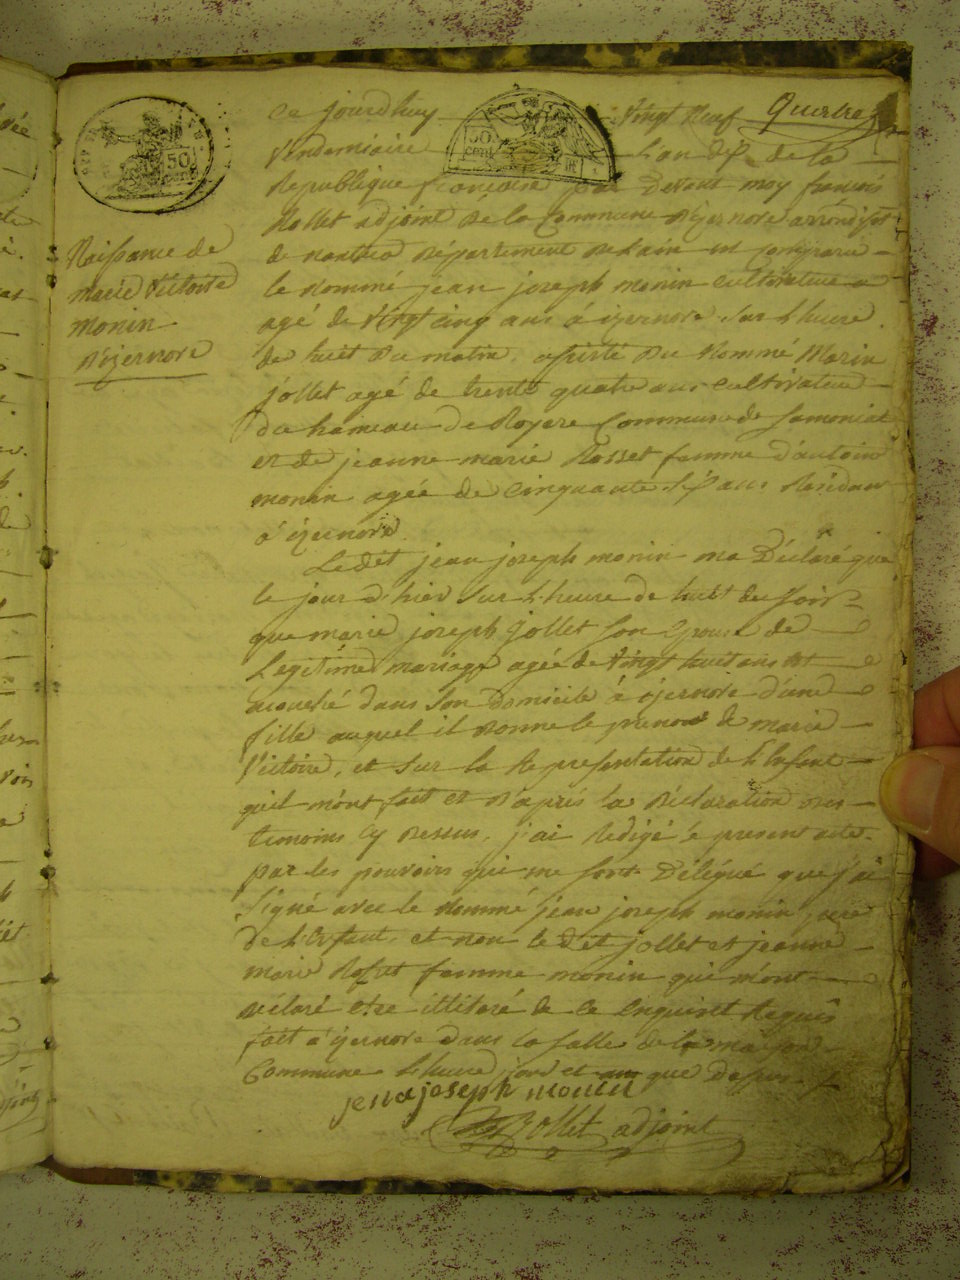 Quatre
Ce jourdhuy Vingt Neuf
Vendemiaire L'an dix de la
Republique francoise par Devant moy francois
Rollet adjoint De la Commune D'izernore arrondisst
de nantua Département De Lain est comparu
le Nommé jean joseph monin cultivateur
agé de Vingt cinq ans à izernore Sur L'heure
de huit Du matin, assisté Du Nommé Marin
jollet agé de trente quatre ans cultivateur
du hameau de Royere Commune de Samoniat
et de jeanne marie Rosset femme d'antoine
monin agée de cinquante Six ans Résidant
à izernore
Ledit jean joseph monin ma Déclaré que
le jour d'hier Sur L'heure de huit du Soir
que marie joseph jollet Son Epouse de
Legitime mariage agée de Vingt huit ans est
acouché dans Son Domicile à izernore d'une
fille auquel il Donne le prenom de marie
Victoire, et Sur la Representation de L'Enfant
quil m'ont fait et D'après la Déclaration Des
temoins cy Dessus, j'ai Redigé le present acte
par les pouvoirs qui me sont Délégué que j'ai
Signé avec le Nommé jean joseph monin pere
de L'Enfant, et non le Dit jollet et jeanne
marie Rosset femme monin qui m'ont
Déclaré etre illiteré de ce enquis et Requis
fait à izernore Dans la Salle de la maison
Commune L'heure jour et an que Dessus
jena joseph monin
Rollet adjoint
Naissance de
marie Victoire
Monin
D'izernore
50
cent
50
cent